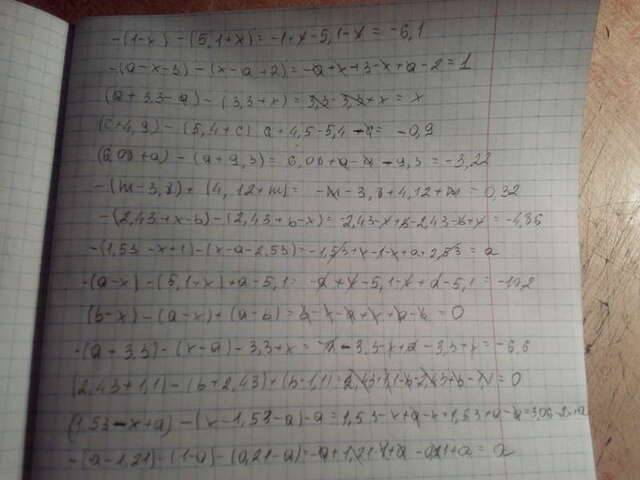 -(1-x) - (5,1+x) = -1+x-5,1-x = -6,1
-(a-x-3) - (x-a+2) = -a+x+3-x+a-2 = 1
(a+3,3-a) - (3,3+x) = 3,3-3,3+x = x
(c+4,9) - (5,4+c) c+4,5-5,4-c = -0,9
(6,08+a) - (a+9,3) = 6,08+a-a-9,3 = -3,22
-(m-3,8) + (4,12+m) = -m-3,8+4,12+m = 0,32
-(2,43+x-b) - (2,43+b-x) = -2,43-x+b-2,43-b+x = -4,86
-(1,53-x+1) - (x-a-2,53) = -1,53+x-1-x+a+2,53 = a
-(a-x) - (5,1+x) + a-5,1 = -a+x-5,1-x+a-5,1 = -10,2
(b-x) - (a-x) + (a-b) = b-x-a+x+a-b = 0
-(a+3,3) - (x-a) - 3,3+x = -a-3,3-x+a-3,3+x = -6,6
(2,43+1,1) - (b+2,43) + (b-1,1) = 2,43+1,1-b-2,43+b-1,1 = 0
(1,53-x+a) - (x-1,53-a) - a = 1,53-x+a-x+1,53+a-a = 3,06-2x+a
-(a-1,21) - (1-a) - (0,21-a) = -a+1,21-1+a-0,21+a = a